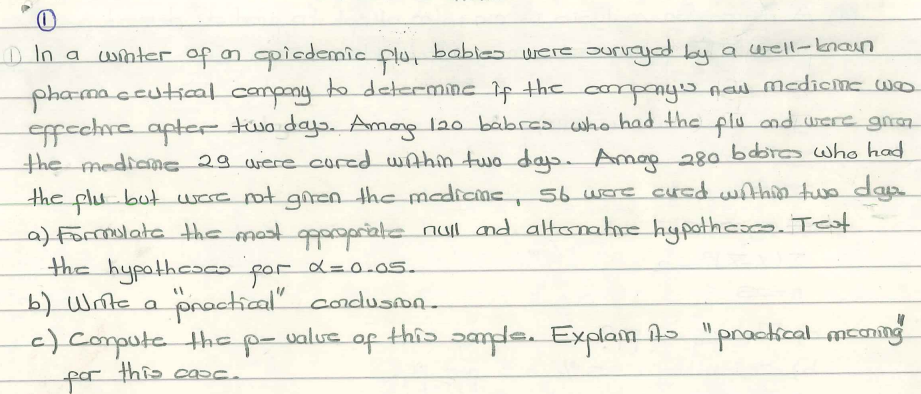 ①
① In a winter of an epidemic flu, babies were surveyed by a well-known
pharmaceutical company to determine if the company's new medicine was
effective after two days. Among 120 babies who had the flu and were given
the medicine 29 were cured within two days. Among 280 babies who had
the flu but were not given the medicine, 56 were cured within two days
a) Formulate the most appropriate null and alternative hypotheses. Test
the hypotheses for α = 0.05.
b) Write a "practical" conclusion.
c) Compute the p-value of this sample. Explain its "practical meaning"
for this case.